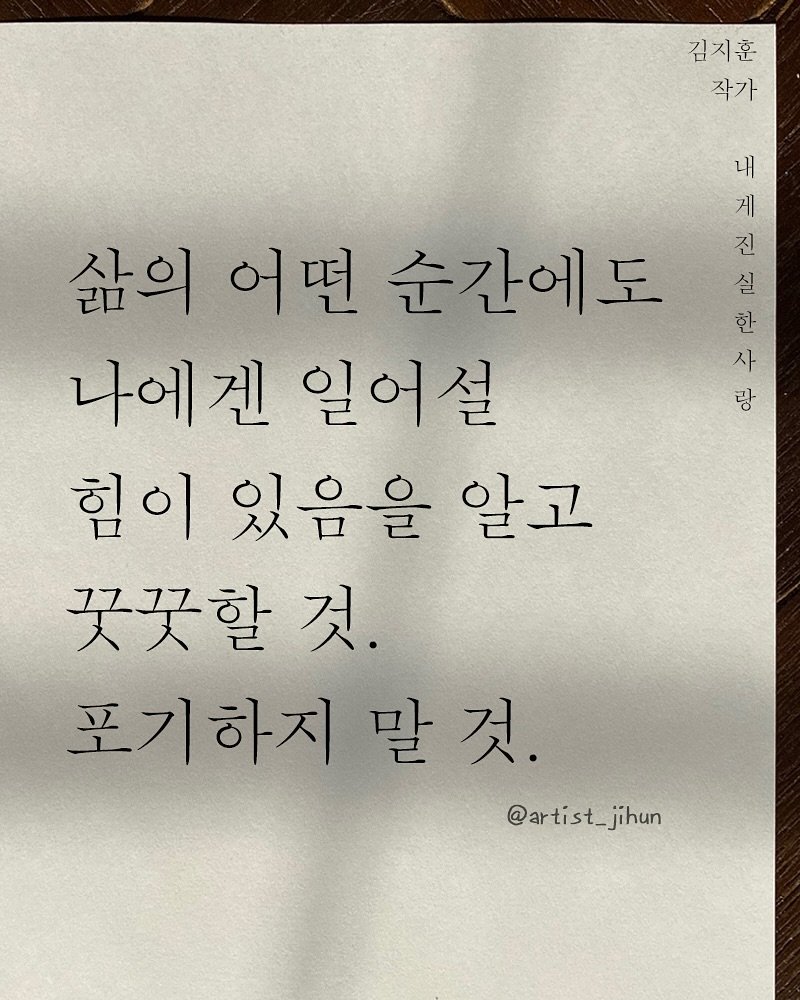 김지훈
작가
내게진실한사랑
삶의 어떤 순간에도
나에겐 일어설
힘이 있음을 알고
꿋꿋할 것.
포기하지 말 것.
@artist_jihun